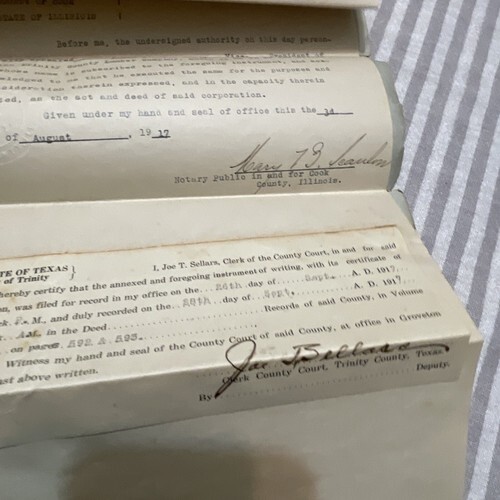 STATE OF ILLINOIS
Before me, the undersigned authority on this day person-
President of
is subscribed to the foregoing instrument, and
to me that he executed the same for the purposes and
consideration therein expressed, and in the capacity therein
as the act and deed of said corporation.
Given under my hand and seal of office this the 3d
of August, 1917
Mary B. Scanlon
Notary Public in and for Cook
County, Illinois.
TE OF TEXAS
of Trinity
I, Joe T. Sellars, Clerk of the County Court, in and for said
hereby certify that the annexed and foregoing instrument of writing, with its certificate of
on, was filed for record in my office on the 26th day of Sept. A. D. 1917,
M., and duly recorded on the 28th day of Sept. A. D. 1917
A.M. in the Deed Records of said County, in Volume
on pages 592 & 593.
Witness my hand and seal of the County Court of said County, at office in Groveton
ast above written.
Joe T Sellars
Clerk County Court, Trinity County, Texas
By Deputy.